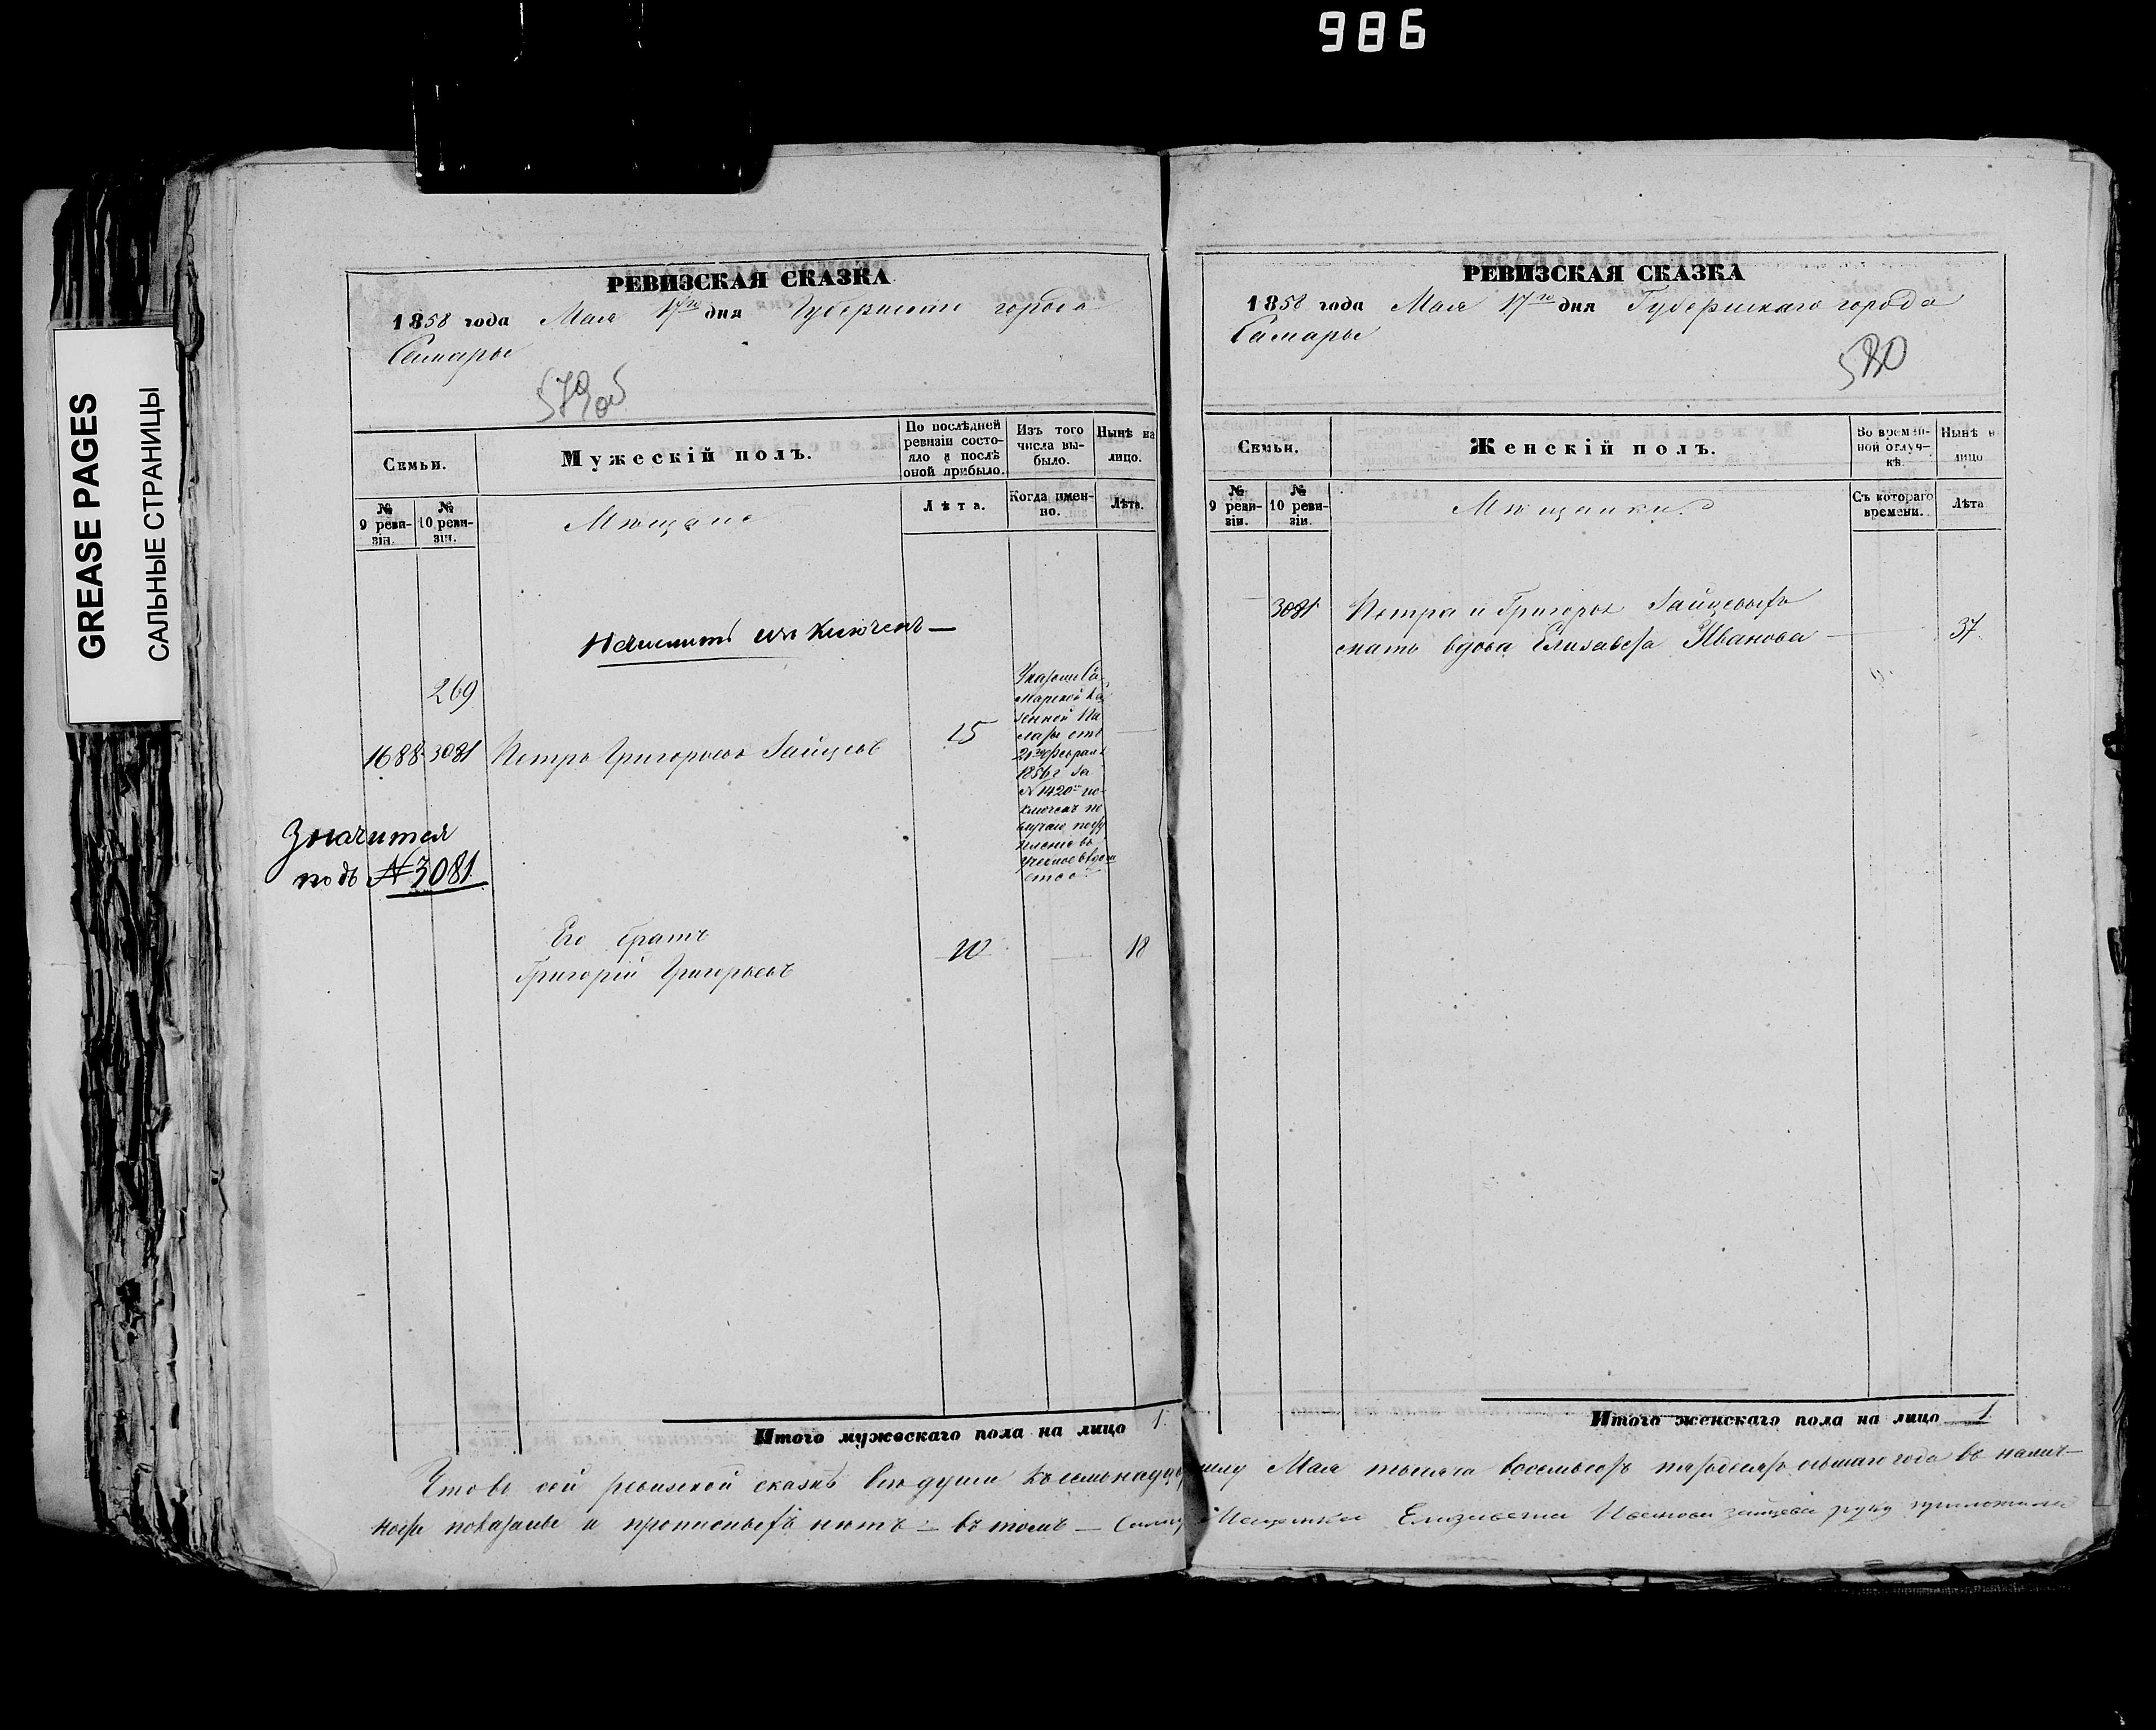 986
GREASE PAGES
САЛЬНЫЕ СТРАНИЦЫ
РЕВИЗСКАЯ СКАЗКА
1858 года Мая 17го дня Губернскаго города
Самары
579об
Семьи.
Мужескій полъ.
По послѣдней ревизіи состояло и послѣ оной прибыло.
Изъ того числа выбыло.
Нынѣ на лицо.
№ 9 ревизіи.
№ 10 ревизіи.
Мѣщане
Лѣта.
Когда именно.
Лѣта.
исключенъ —
269
1688 3081 Петръ Григорьевъ Зайцевъ 15
Указомъ Са
марской Ка
зенной Па
латы отъ
февраля
1856 г за
№ 1420 ис
ключенъ по
случаю посту
пленія въ
ученое вѣдом
ство
Значится
подъ №3081
Его братъ
Григорій Григорьевъ 10 — 18
Итого мужескаго пола на лицо 1
РЕВИЗСКАЯ СКАЗКА
1858 года Мая 17го дня Губернскаго города
Самары
580
Семьи.
Женскій полъ.
Во временной отлучкѣ.
Нынѣ на лицо
№ 9 ревизіи.
№ 10 ревизіи.
Мѣщанки
Съ котораго времени.
Лѣта
3081 Петра и Григорья Зайцевыхъ
мать вдова Елизавета Иванова — 37
Итого женскаго пола на лицо 1
Что въ сей ревизской сказкѣ всѣ души къ семнадцатому числу Мая тысяча восемьсотъ пятьдесятъ осьмаго года въ налич—
ности показаны и прописныхъ нѣтъ — въ томъ — Мещанка Елизавета Иванова зайцева руку приложила